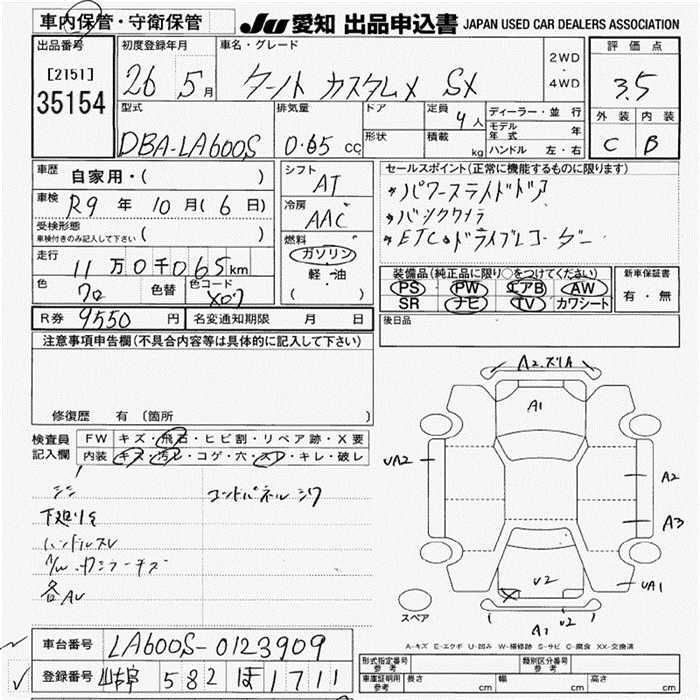 車内保管・守衛保管
JU 愛知 出品申込書 JAPAN USED CAR DEALERS ASSOCIATION
出品番号
[2151]
35154
初度登録年月
26 5月
車名・グレード
タント カスタムX SX
2WD
・
4WD
評価点
3.5
外装 内装
C B
型式
DBA-LA600S
排気量
0.65 cc
ドア
形状
定員
4人
積載
kg
ディーラー・並行
モデル年式 年
ハンドル 左・右
車歴
自家用・( )
車検
R9年10月(6日)
受検形態
車検付きのみ記入して下さい ( )
走行
11万0千065km
色
クロ
色替
色コード
X07
シフト
AT
冷房
AAC
燃料
ガソリン
軽・油
( )
セールスポイント(正常に機能するものに限ります)
〃パワースライドドア
〃バックカメラ
〃ETC〃ドライブレコーダー
装備品(純正品に限り○をつけてください)
PS PW エアB AW
SR ナビ TV カワシート
新車保証書
有・無
R券 9550円
名変通知期限 月 日
後日品
注意事項申告欄(不具合内容等は具体的に記入して下さい)
修復歴 有 〔箇所 〕
検査員記入欄
FW キズ・飛石・ヒビ割・リペア跡・X要
内装 キズ・汚レ・コゲ・穴・スレ・キレ・破レ
下廻りS
ハンドルスレ
コンパネルシワ
各AU
A2.スリA
A1
UA2
A2
A3
U2
UA1
X
A1
U2
スペア
A-キズ E-エクボ U-凹み W-補修跡 S-サビ C-腐食 XX-交換済
車台番号 LA600S-0123909
登録番号 岐阜 582 ほ 1711
形式指定番号 参考
類別区分番号 参考
車庫証明用 参考
長さ cm
幅 cm
高さ cm